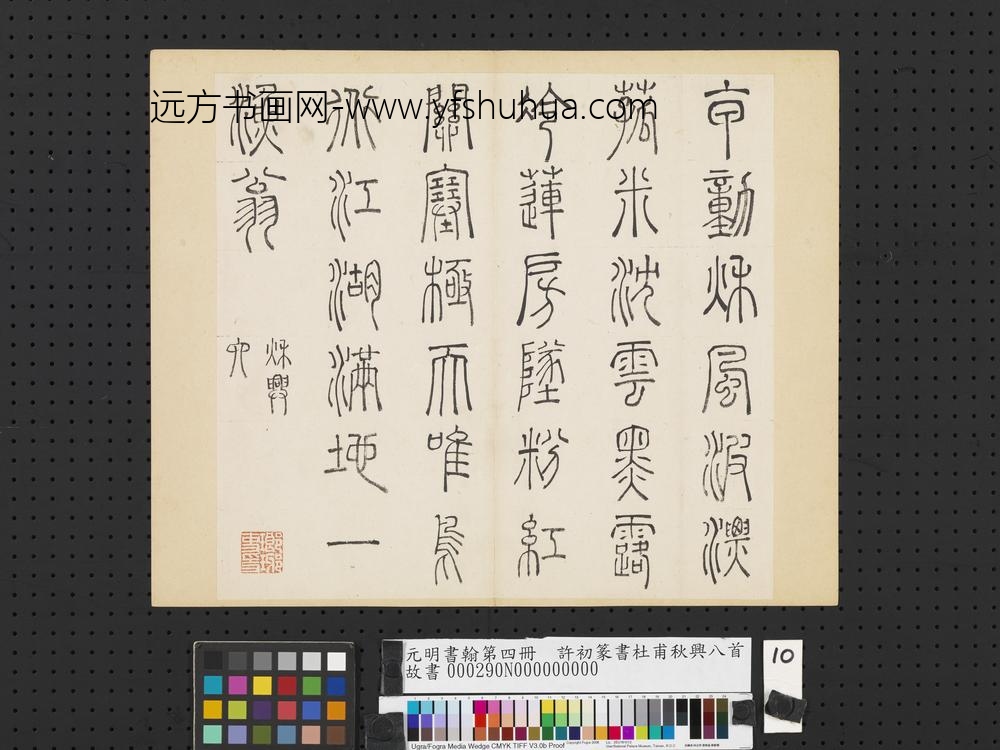 甲動秋風波漂
菰米沈雲黑露
冷蓮房墜粉紅
關塞極天唯鳥
道江湖滿地一
漁翁
秋興
远方书画网-www.yfshuhua.com
元明書翰第四冊 許初篆書杜甫秋興八首
故書 000290N000000000
10
Ugra/Fogra Media Wedge CMYK TIFF V3.0b Proof